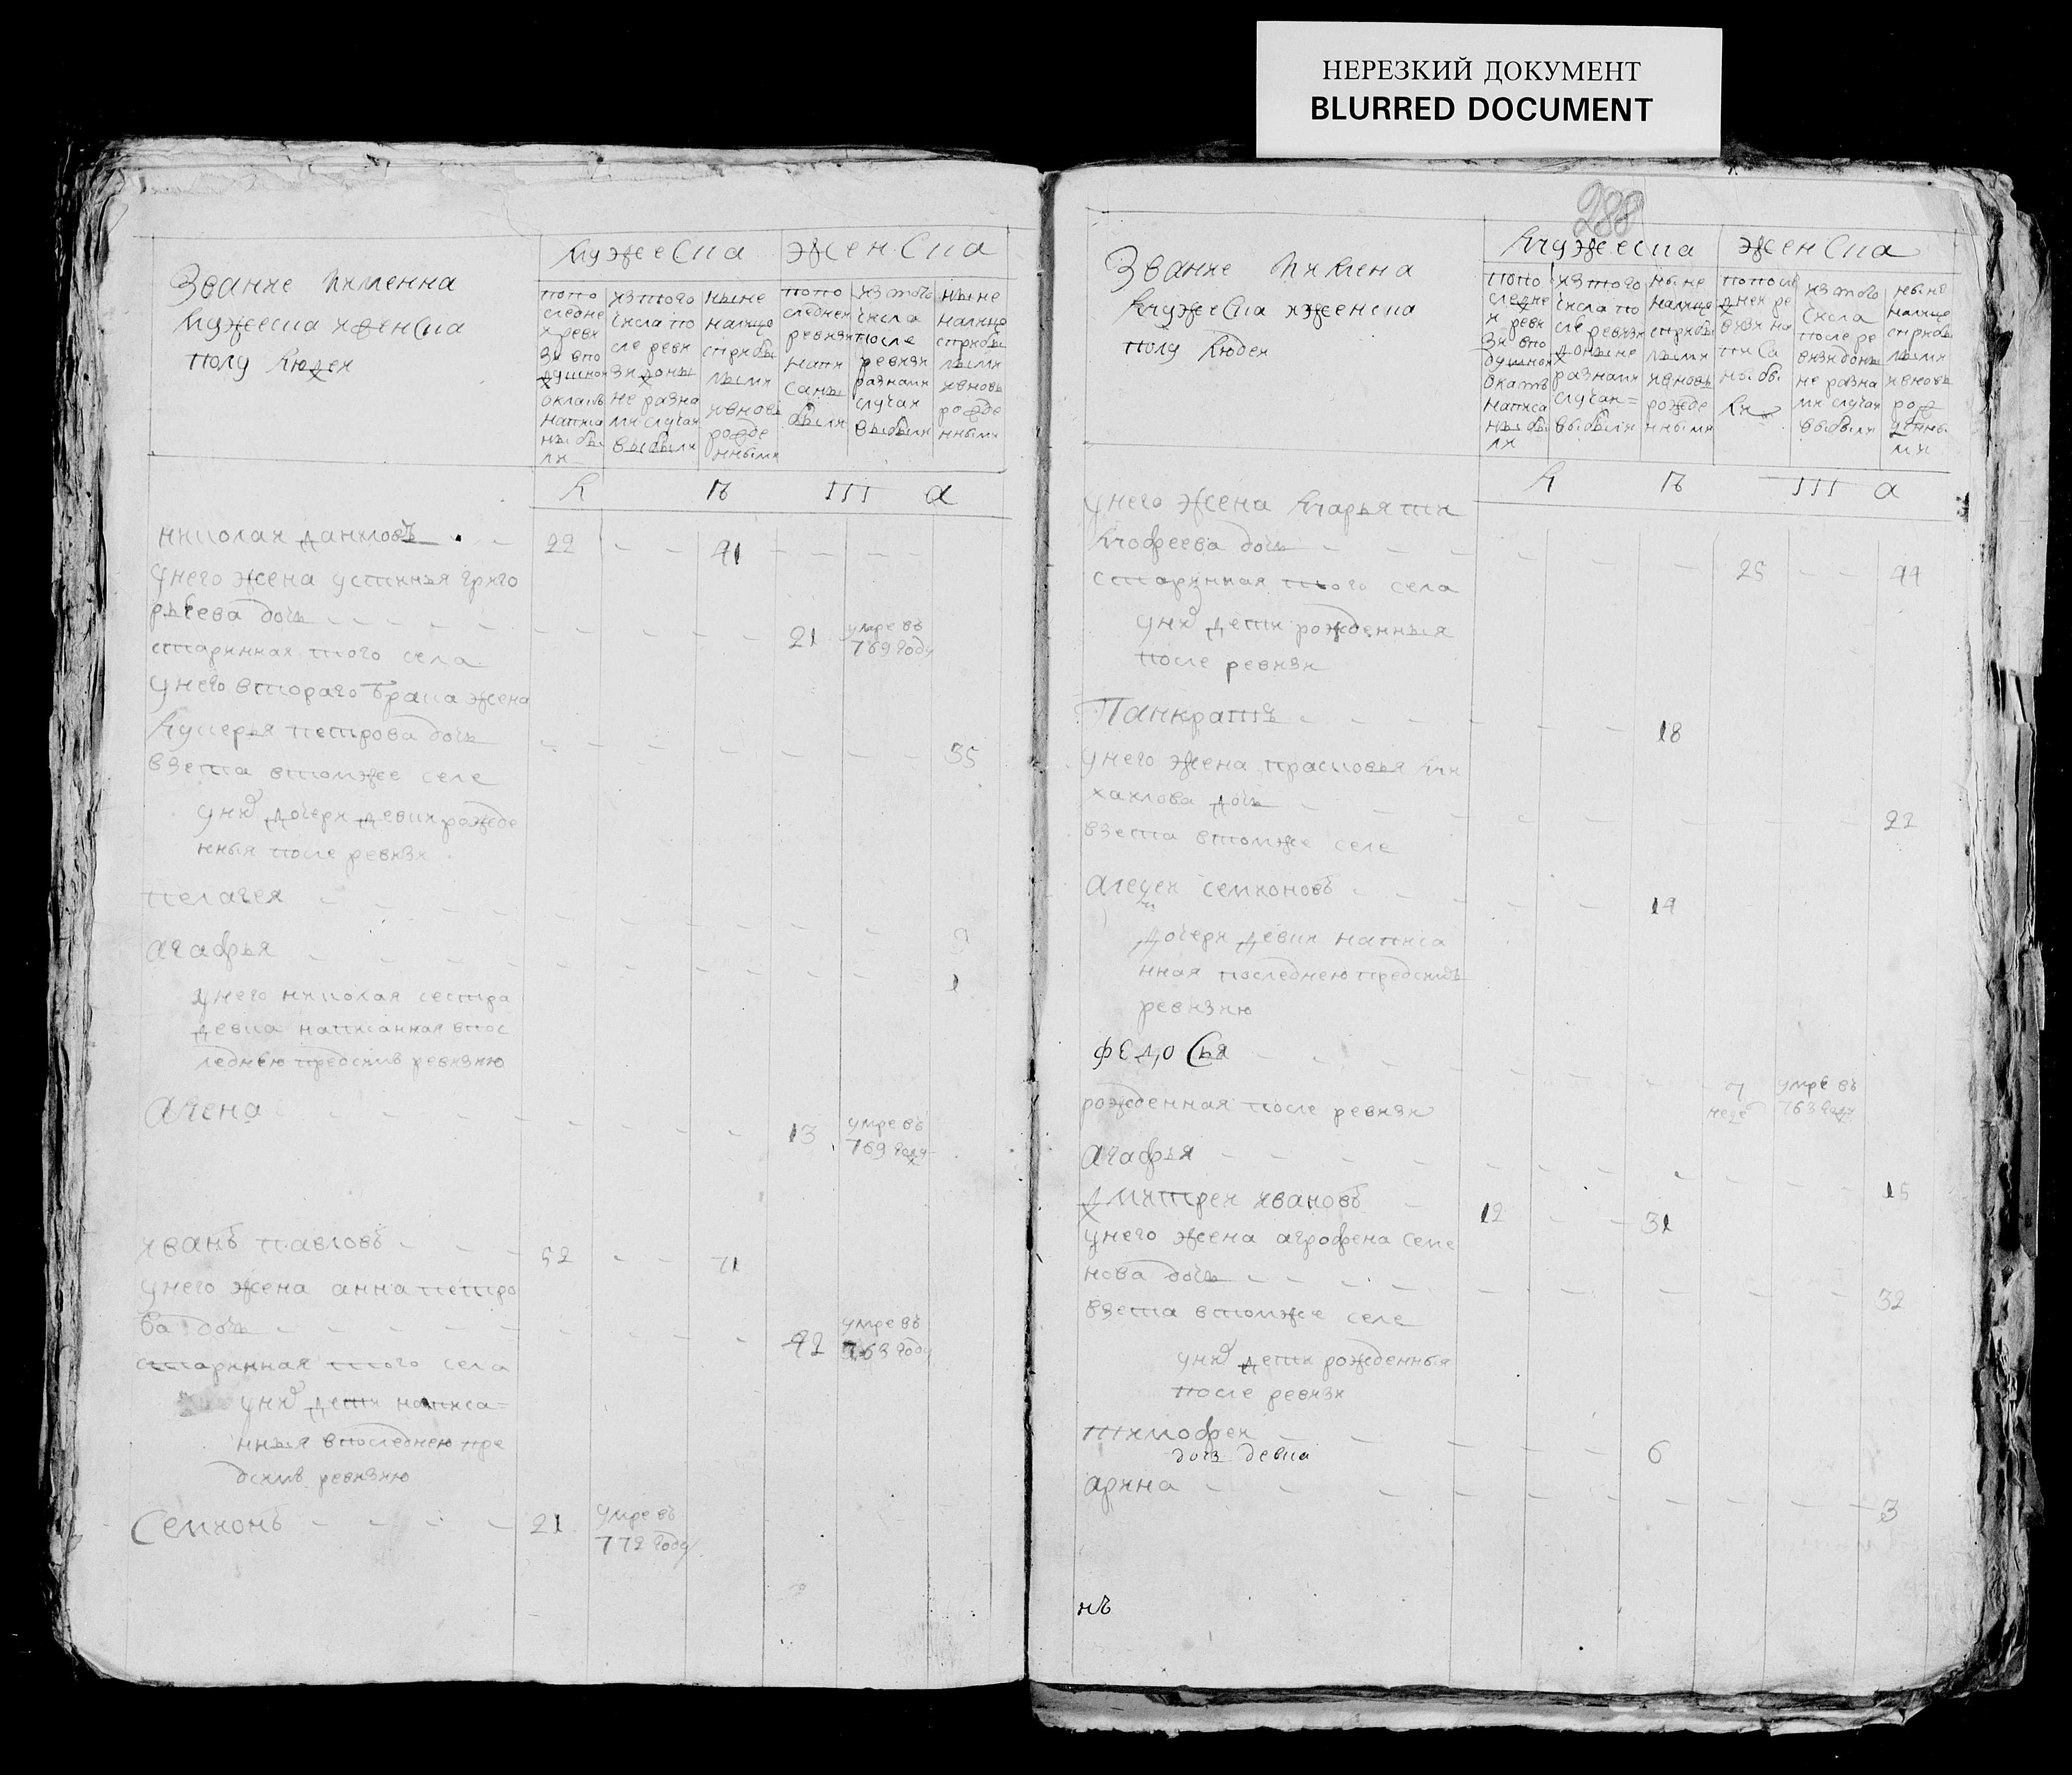 НЕРЕЗКИЙ ДОКУМЕНТ
BLURRED DOCUMENT
Звание иимянна
мужеска иженска
полу людеи
мужеска
женска
попо
следне
и реви
зи впо
душнои
окладъ
написа
ны бы
ли
изтого
числа по
сле реви
зи доны
не разны
ми случаи
выбыли
ныне
налицо
сприбы
лыми
ивновь
рожде
нными
попо
следнеи
ревизи
напи
саны
были
изтого
числа
после
ревизи
разными
случаи
выбыли
ныне
налицо
сприбы
лыми
ивновь
рожде
нными
николаи даниловъ 22 41
унего жена устинья григо
рьева дочь 21 умре въ 769 году
старинная того села
унего втораго брака жена
лукерья петрова дочь 35
взета втомже селе
уних дочери девки рожде
нныя после ревизи
пелагея 9
агафья 1
унего николая сестра
девка написанная впос
леднею предсимъ ревизию
алена 13 умре въ 769 году
иванъ павловъ 52 71
унего жена анна петро
ва дочь 42 умре въ 763 году
старинная того села
уних дети написа=
нныя впоследнею пре
дсимъ ревизию
Семионъ 21 умре въ 772 году
288
Звание иимена
мужеска иженска
полу людеи
мужеска
женска
попо
следне
и реви
зи впо
душнои
окладъ
написа
ны бы
ли
изтого
числа по
сле ревизи
доныне
разными
случаи=
выбыли
ныне
налицо
сприбы
лыми
ивновь
рожде
нными
попосле
днеи ре
визи на
писа
ны бы
ли
изтого
числа
после ре
визи доны
не разны
ми случаи
выбыли
ныне
налицо
сприбы
лыми
ивновь
рож
денны
ми
унего жена марья ти
мофеева дочь 25 44
старинная того села
уних дети рожденныя
после ревизи
Панкратъ 18
унего жена прасковья ми
хаилова дочь 22
взета втомже селе
алексеи семионовъ 14
дочери девки написа
нная последнею предсимъ
ревизию
федосья 7 неде умре въ 763 году
рожденная после ревизи
агафья 15
дмитреи ивановъ 12 31
унего жена агрофена семе
нова дочь 32
взета втомже селе
уних дети рожденныя
после ревизи
тимофеи 6
дочь девка
арина 3